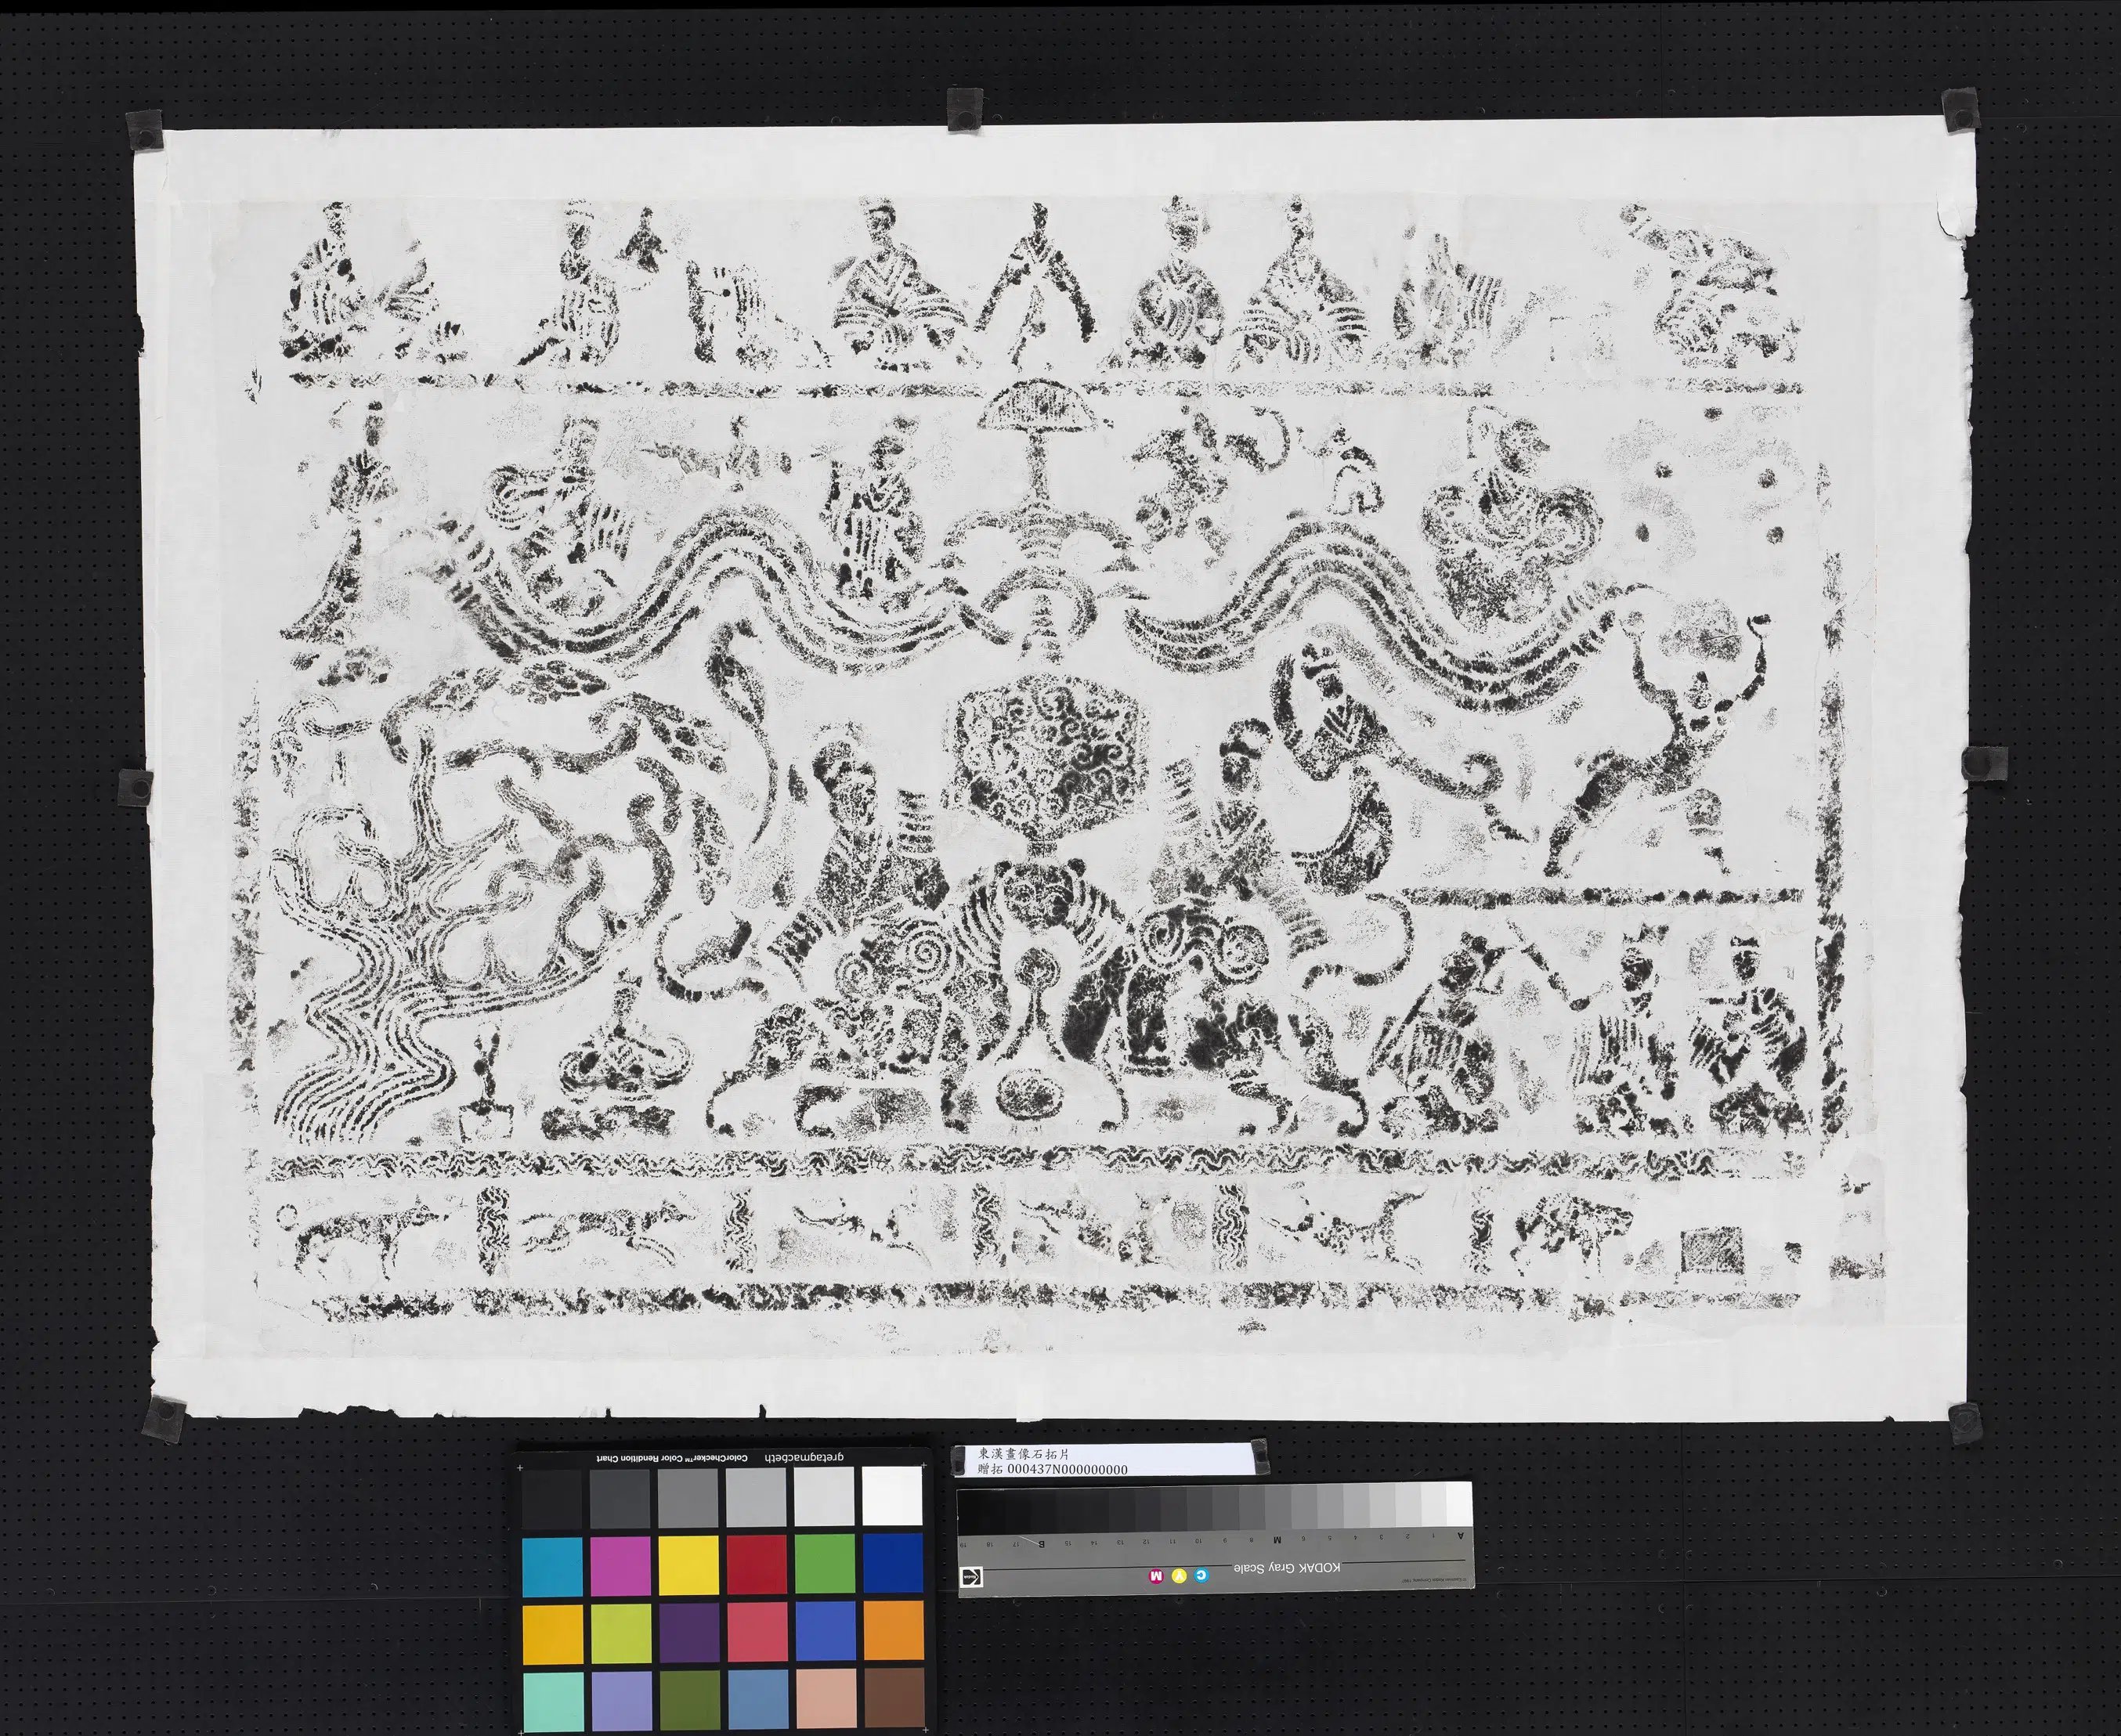 東漢畫像石拓片
贈拓 000437N000000000
gretagmacbeth
ColorChecker™ Color Rendition Chart
A 1 2 3 4 5 6 M 8 9 10 11 12 13 14 15 B 17 18 19
KODAK Gray Scale
C Y M
Kodak